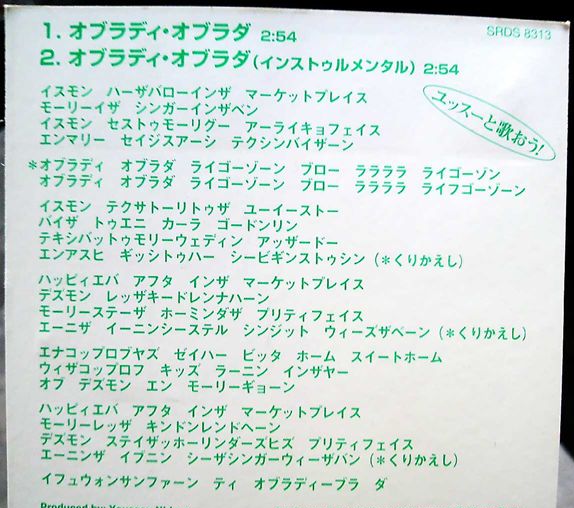 1. オブラディ・オブラダ 2:54
SRDS 8313
2. オブラディ・オブラダ(インストゥルメンタル) 2:54
ユッスーと歌おう!
イスモン ハーザバローインザ マーケットプレイス
モーリーイザ シンガーインザベン
イスモン セストゥモーリグー アーライキョフェイス
エンマリー セイジスアーシ テクシンバイザーン
*オブラディ オブラダ ライゴーゾーン ブロー ララララ ライゴーゾン
オブラディ オブラダ ライゴーゾーン ブロー ララララ ライフゴーゾーン
イスモン テクサトーリトゥザ ユーイーストー
バイザ トゥエニ カーラ ゴードンリン
テキシバットゥモリーウェディン アッザードー
エンアスヒ ギッシトゥハー シービギンストゥシン (*くりかえし)
ハッピィエバ アフタ インザ マーケットプレイス
デズモン レッザキードレンナハーン
モーリーステーザ ホーミンダザ プリティフェイス
エーニザ イーニンシーステル シンジット ウィーズザベーン (*くりかえし)
エナコップロブヤズ ゼイハー ビッタ ホーム スイートホーム
ウィザコップロフ キッズ ラーニン インザヤー
オブ デズモン エン モーリーギョーン
ハッピィエバ アフタ インザ マーケットプレイス
モーリーレッザ キンドンレンドヘーン
デズモン ステイザッホーリンダーズヒズ プリティフェイス
エーニンザ イブニン シーザシンガーウィーザバン (*くりかえし)
イフュウォンサンファーン ティ オブラディーブラ ダ
Produced by: